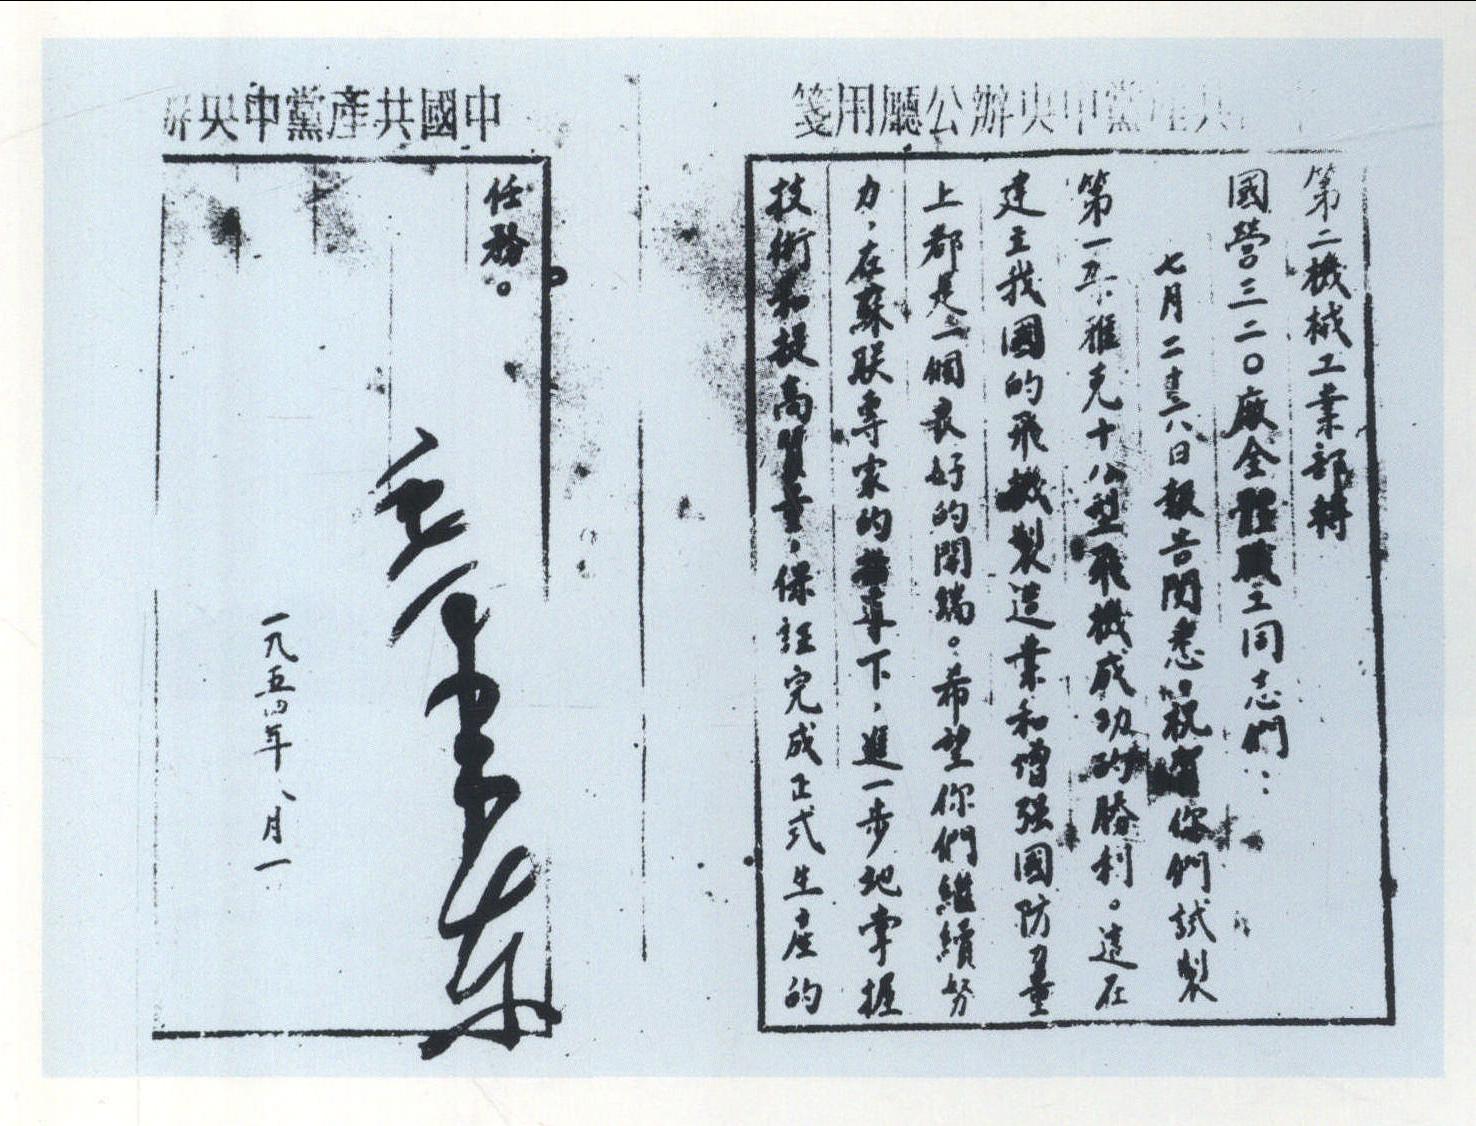 中國共產黨中央辦公廳用箋
第二機械工業部轉
國營三二〇廠全體職工同志們：
七月二十六日報告閱悉。祝賀你們試製
第一架雅克十八型飛機成功的勝利。這在
建立我國的飛機製造業和增强國防力量
上都是一個良好的開端。希望你們繼續努
力，在蘇联專家的指導下，進一步地掌握
技術和提高質量，保証完成正式生產的
中國共產黨中央辦
任務。
毛澤东
一九五四年八月一